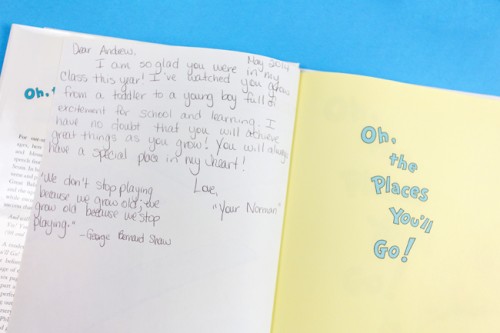 Dear Andrew,
May 2014
I am so glad you were in my
class this year! I've watched you grow
from a toddler to a young boy full of
excitement for school and learning. I
have no doubt that you will achieve
great things as you grow! You will always
have a special place in my heart!
Love,
"Your Norman"
"We don't stop playing
because we grow old; we
grow old because we stop
playing."
-George Bernard Shaw
Oh,
Oh,
the
Places
You'll
Go!